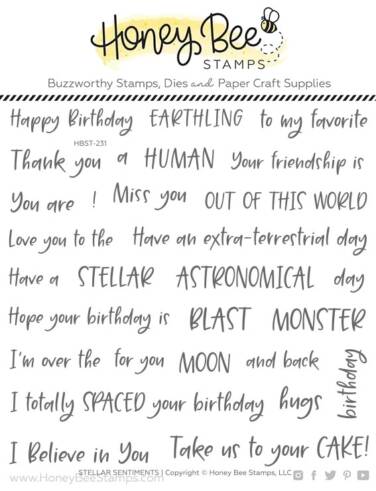 Honey Bee
STAMPS
Buzzworthy Stamps, Dies and Paper Craft Supplies
Happy Birthday EARTHLING to my favorite
HBST-231
Thank you a HUMAN Your friendship is
You are ! Miss you OUT OF THIS WORLD
Love you to the Have an extra-terrestrial day
Have a STELLAR ASTRONOMICAL day
Hope your birthday is BLAST MONSTER
I'm over the for you MOON and back
birthday
I totally SPACED your birthday hugs
I Believe in You Take us to your CAKE!
STELLAR SENTIMENTS | Copyright © Honey Bee Stamps, LLC
www.HoneyBeeStamps.com